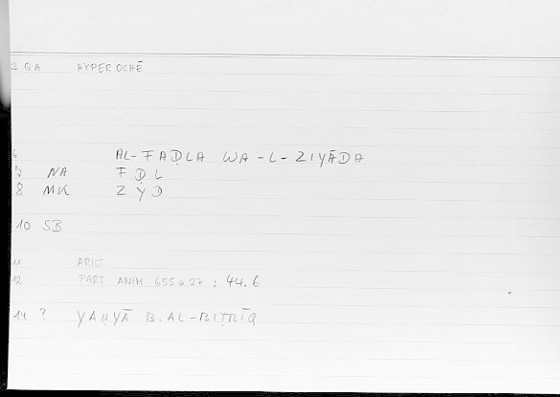 2 GA HYPEROCHĒ
6 AL-FAḌLA WA-L-ZIYĀDA
7 NA F Ḍ L
8 MK Z Y D
10 SB
11 ARIST
12 PART ANIM 655a27 : 44.6
14 ? YAḤYĀ B. AL-BIṬRĪQ